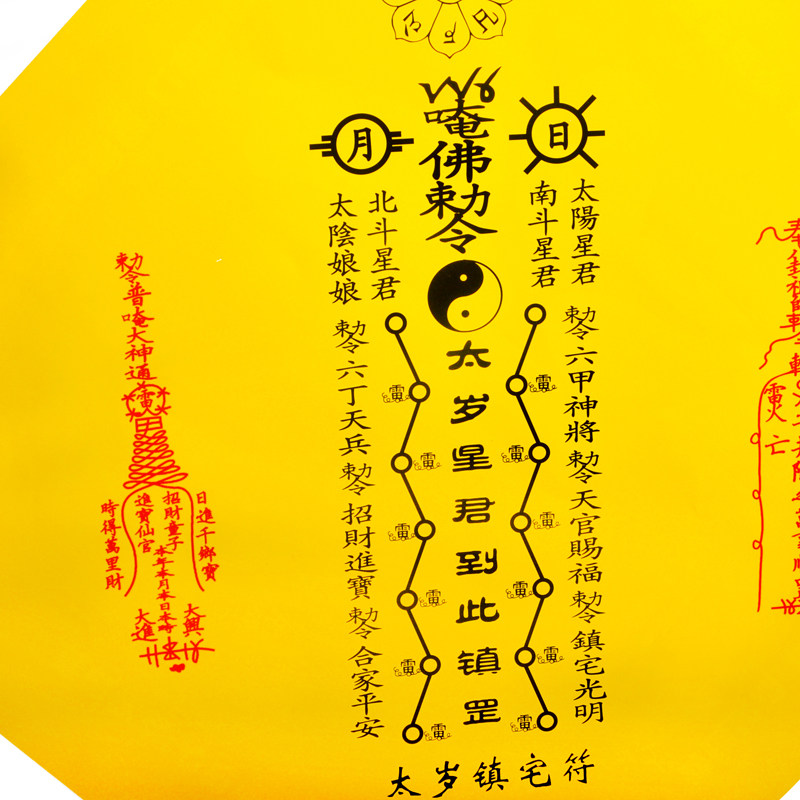 月
日
唵佛勅令
太陽星君
南斗星君
北斗星君
太陰娘娘
太岁星君到此镇罡
勅令六甲神將勅令天官賜福勅令鎮宅光明
勅令六丁天兵勅令招財進寶勅令合家平安
雷
雷
雷
雷
雷
雷
雷
雷
雷
雷
雷
雷
太岁镇宅符
勅令普唵大神通
雷火
日進千鄉寶
招財童子
進寶仙官
時得萬里財
本年本月本日本時
大興
大進
雷火